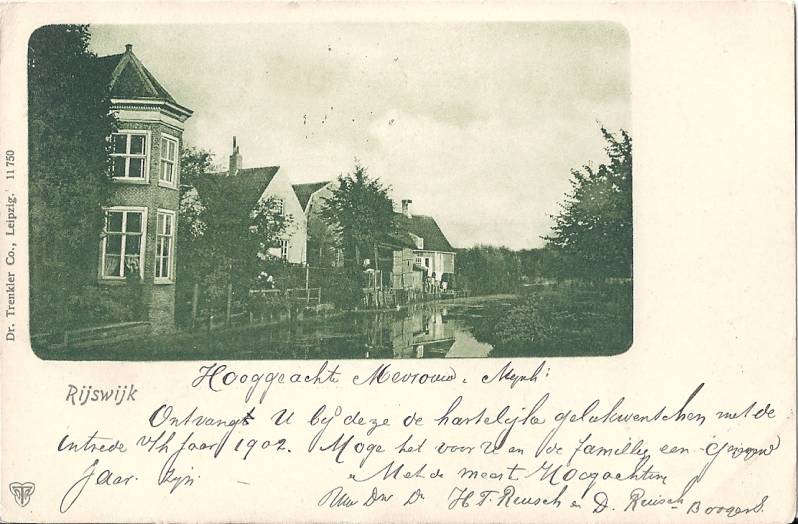 Dr. Trenkler Co., Leipzig. 11 750
Rijswijk
Hooggeachte Mevrouw
Ontvangt U bij deze de hartelijke gelukwenschen met de
intrede v/h Jaar 1902. Moge het voor U en de famillie een
Jaar zijn
Met de meest Hoogachting
H.T. Reusch en D. Reusch